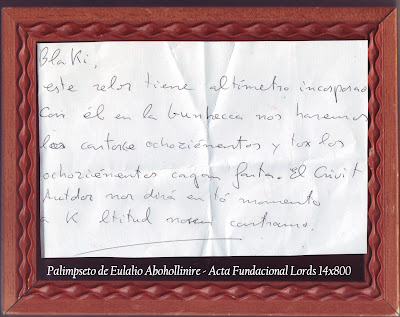 Blaki,
este reloj tiene altímetro incorporao
Con él en la bunhecca nos haremos
los cartorce ochoziémentos y tos los
ochoziémentos cagan fanta. El Crivit
Autdor nos dirá en tó momento
a K ltitud nosem contramo.
Palimpseto de Eulalio Abohollinire - Acta Fundacional Lords 14x800